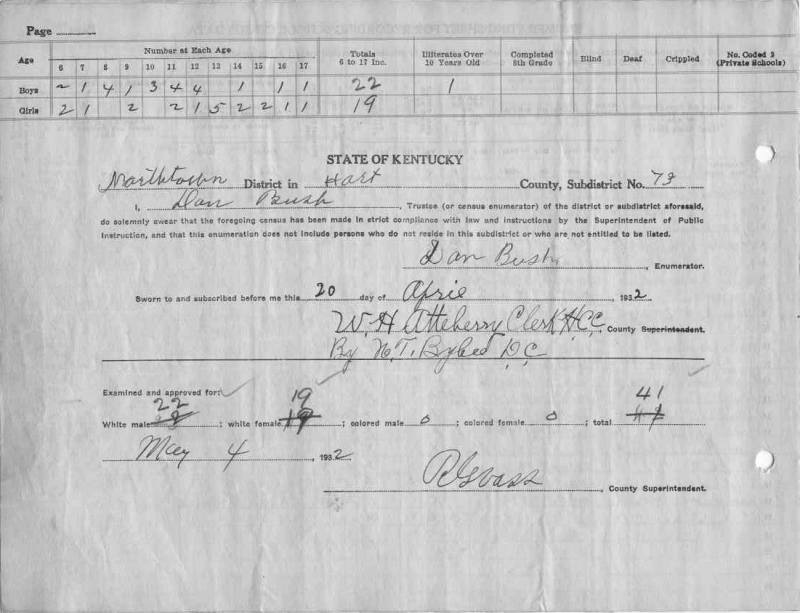 Page
Age Number at Each Age Totals 6 to 17 Inc. Illiterates Over 10 Years Old Completed 8th Grade Blind Deaf Crippled No. Coded 2 (Private Schools)
6 7 8 9 10 11 12 13 14 15 16 17
Boys 2 1 4 1 3 4 4 1 1 1 22 1
Girls 2 1 2 2 1 5 2 2 1 1 19
STATE OF KENTUCKY
Northtown District in Hart County, Subdistrict No. 73
I, Dan Bush, Trustee (or census enumerator) of the district or subdistrict aforesaid,
do solemnly swear that the foregoing census has been made in strict compliance with law and instructions by the Superintendent of Public
Instruction, and that this enumeration does not include persons who do not reside in this subdistrict or who are not entitled to be listed.
Dan Bush, Enumerator.
Sworn to and subscribed before me this 20 day of April, 1932.
W. H. Atteberry Clerk H.C.C. County Superintendent.
By N.T. D.C.
Examined and approved for:
22 19 41
White male ; white female 19 ; colored male 0 ; colored female 0 ; total 41
May 4, 1932
County Superintendent.